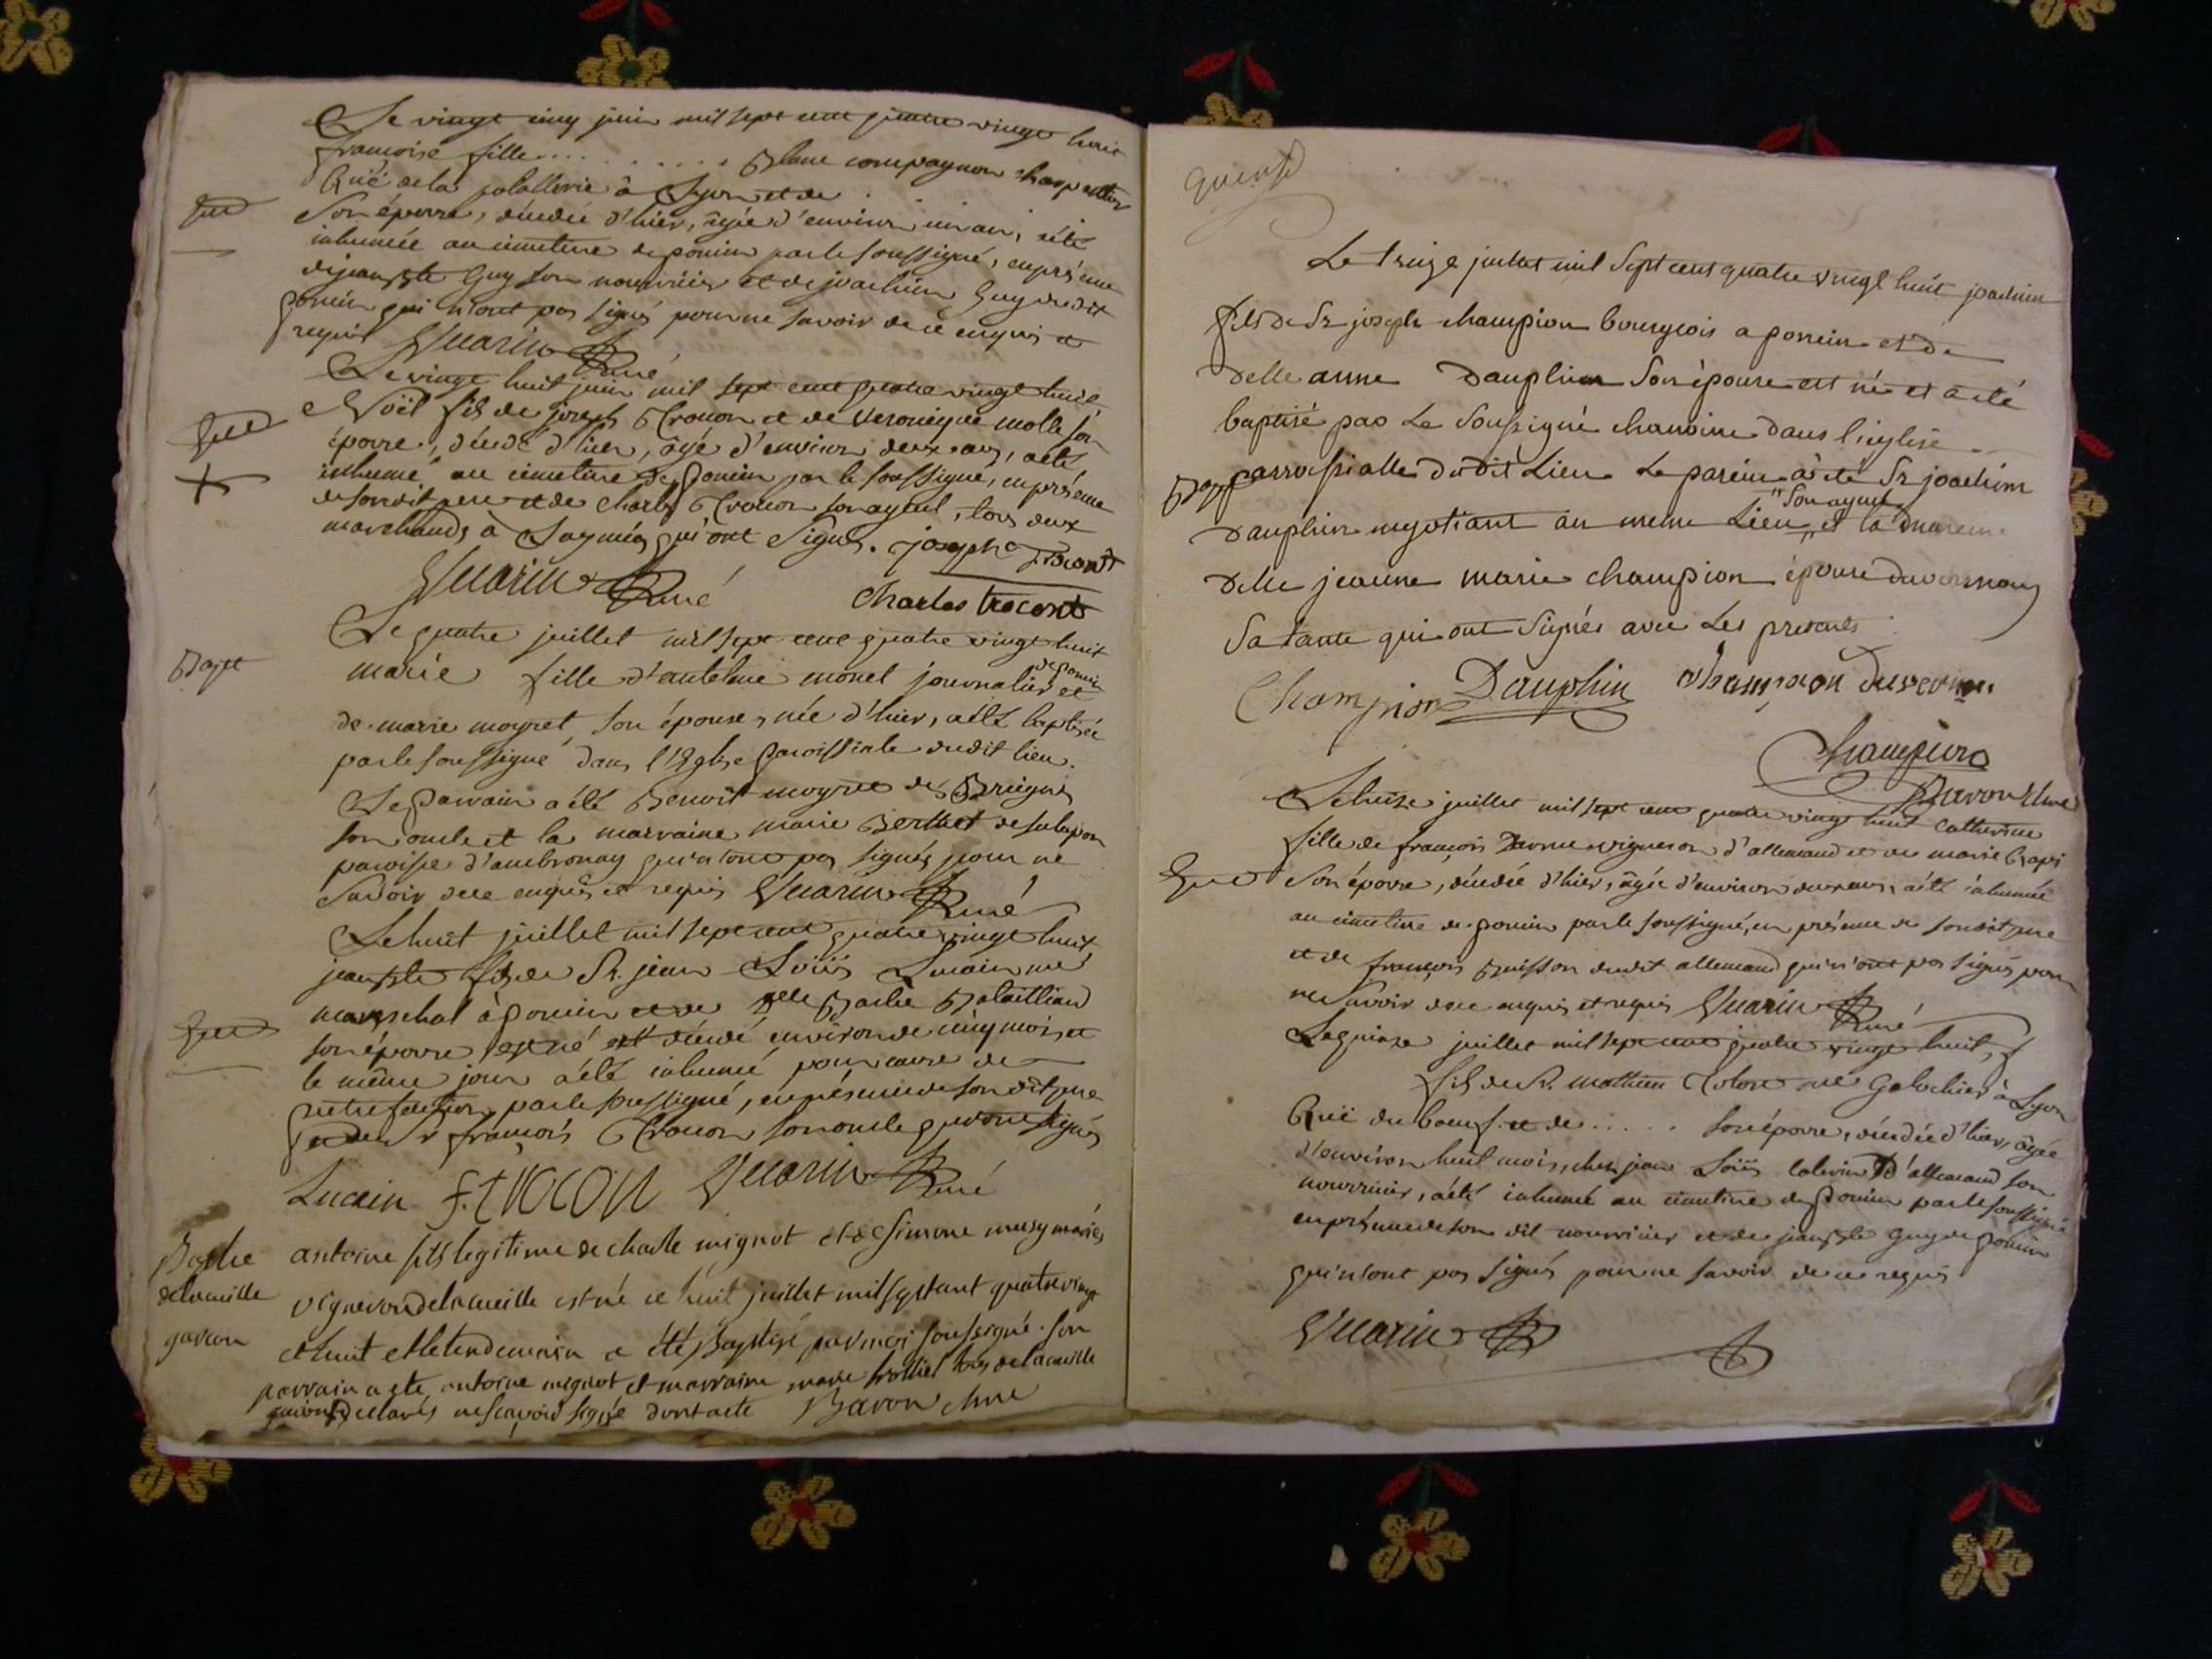 Le vingt cinq juin mil sept cent quatre vingt huit
françoise fille ........... Blanc compagnon charpentier
Ruë de la à Lyon et de
Sep
son épouse, décédée d'hier, âgée d'environ un an, a été
inhumée au cimetiere de poncin par le soussigné, en présence
de jean bte Guy son nourricier et de joachim Guy dudit
poncin qui n'ont pas signés pour ne savoir de ce enquis et
requis Guarin Curé
Le vingt huit juin mil sept cent quatre vingt huit
Sep
Noël fils de joseph Trocon et de veronique molle son
épouse, décédé d'hier, âgé d'environ deux ans, a été
inhumé au cimetiere de poncin par le soussigné, en présence
de son dit pere et de Charles Trocon son ayeul, tous deux
marchands à qui ont signés. joseph trocont
Guarin Curé Charles trocont
Le quatre juillet mil sept cent quatre vingt huit
Bapt
marie fille d'antelme monet journalier de poncin et
de marie moyret son épouse, née d'hier, a été baptisée
par le soussigné dans l'Eglise paroissiale dudit lieu.
Le parrain a été Benoit moyret des
son oncle et la marraine marie Berthet de
paroisse d'ambronay qui n'ont pas signés pour ne
savoir de ce enquis et requis Guarin Curé
Le huit juillet mil sept cent quatre vingt huit
jean bte fils de Sr. jean Loüis Lucain me
mareschal à poncin et de Delle
Sep
son épouse est né et décédé environ de cinq mois et
le même jour a été inhumé pour cause de
putrefaction par le soussigné, en présence de son dit pere
et de Sr françois Trocon son oncle qui ont signés
Lucain F. TROCON Guarin Curé
Baptme
de la cueille
garcon
antoine fils legitime de charle mignot et de simone musy mariés
vigneron de la cueille est né ce huit juillet mil sept cent quatre vingt
et huit et le lendemain a été Baptisé par moi soussigné. son
parrain a été antoine mignot et marraine marie tous de la cueille
qui ont déclarés ne sçavoir signé dont acte Baron chne
quinze
Le treize juillet mil Sept cent quatre vingt huit joachim
fils de Sr joseph champion bourgeois a poncin et de
delle anne Dauphin Son épouse est né et a été
baptisé par Le Soussigné chanoine dans l'église
Bap
parroissialle dudit Lieu Le parein a été Sr joachim
Dauphin negotiant au meme Lieu, son ayeul et la mareine
delle jeanne marie champion épouse duvernay
Sa tante qui ont Signés avec Les présents
Champion Dauphin champion duvernay
Champion
Baron chne
Le treize juillet mil sept cent quatre vingt huit Catherine
fille de françois vigneron d'allemand et de marie
Sep
son épouse, décédée d'hier, âgée d'environ deux ans, a été inhumée
au cimetiere de poncin par le soussigné, en présence de son dit pere
et de françois Buisson dudit allemand qui n'ont pas signés pour
ne savoir de ce enquis et requis Guarin Curé
Le quinze juillet mil sept cent quatre vingt huit,
fils de Sr. mathieu me Galochier à Lyon
Ruë du boeuf et de ..... son épouse, décédée d'hier, âgée
d'environ huit mois, chez jean Loüis d'allemand son
nourricier, a été inhumé au cimetiere de poncin par le soussigné
en présence de son dit nourricier et de jean bte Guy de poncin
qui n'ont pas signés pour ne savoir de ce requis
Guarin